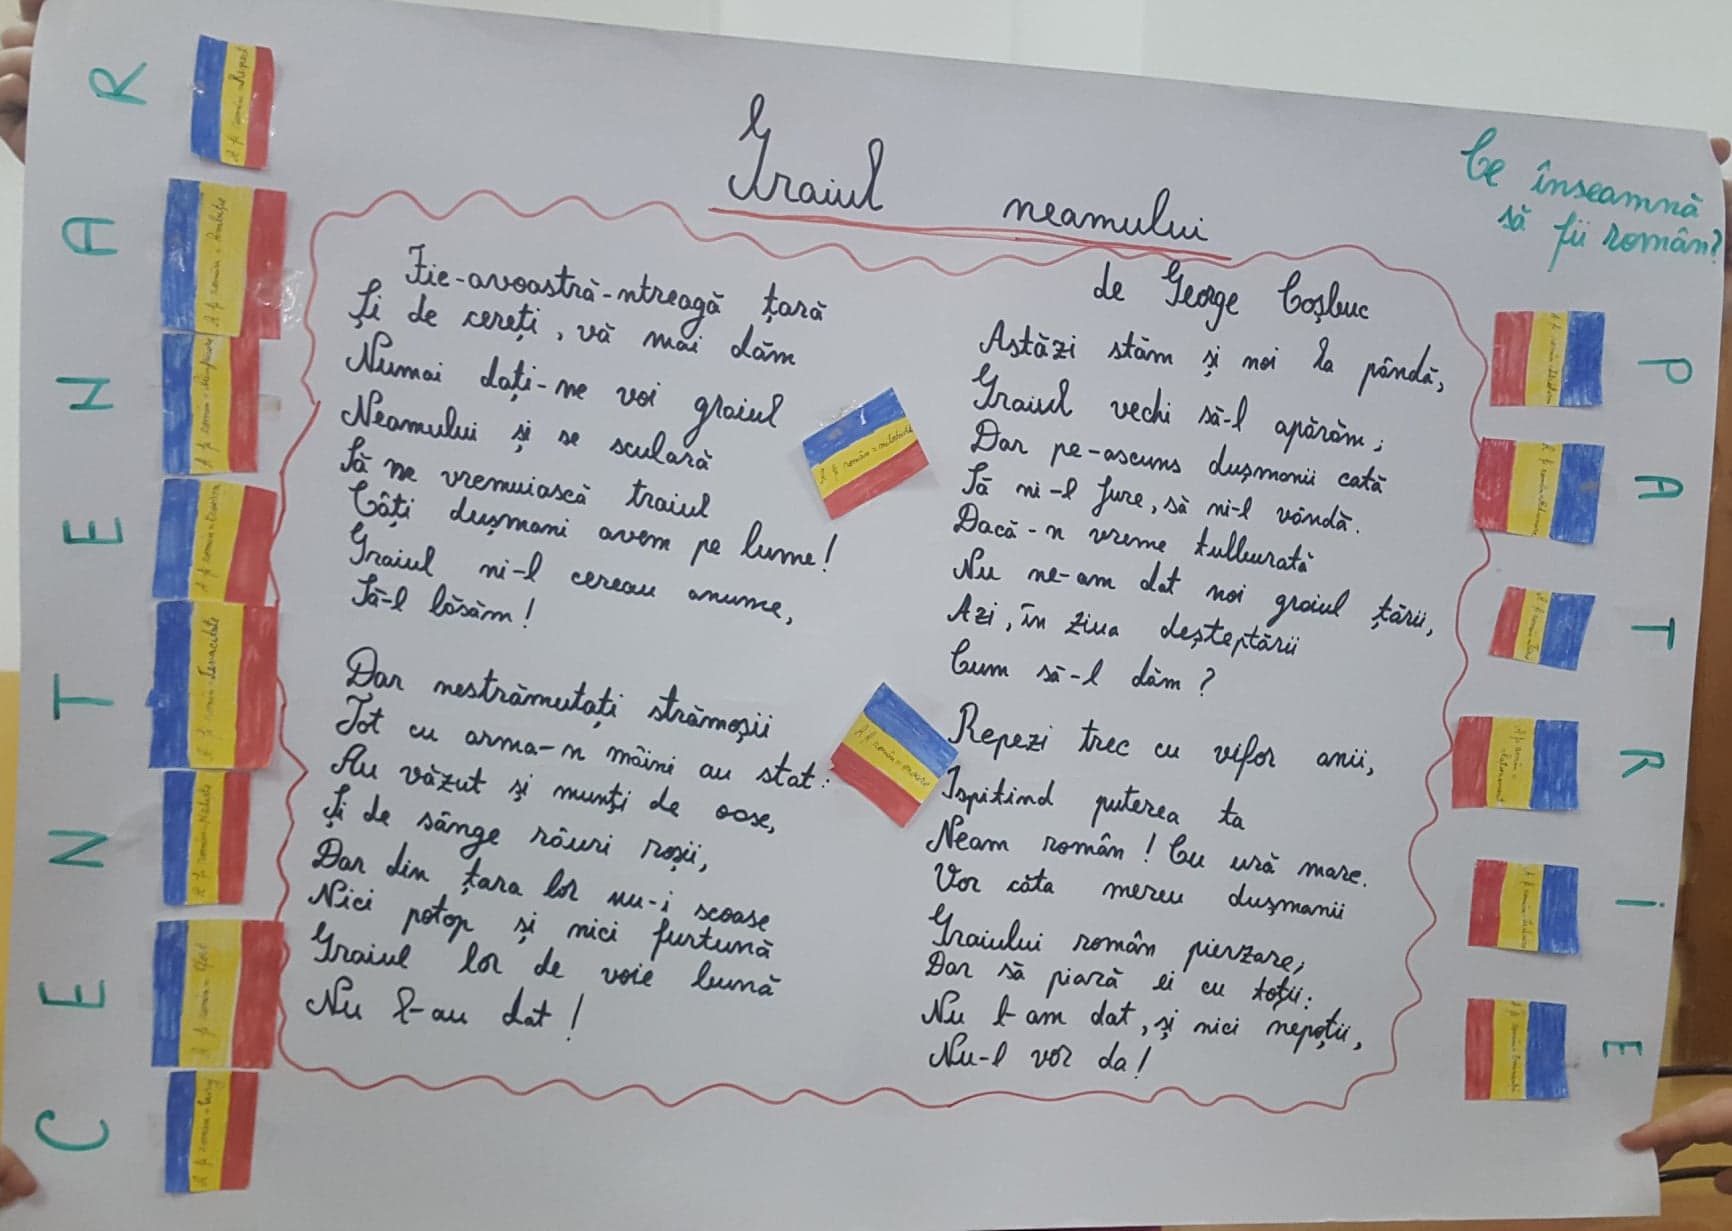 Graiul neamului
de George Coșbuc
Ce înseamnă
să fii român?
CENTENAR
Fie-avoastră-ntreagă țară
Și de cereți, vă mai dăm
Numai dați-ne voi graiul
Neamului și se sculară
Să ne vremuiască traiul
Câți dușmani avem pe lume!
Graiul ni-l cereau anume,
Să-l lăsăm!
Dar nestrămutați strămoșii
Tot cu arma-n mâini au stat:
Au văzut și munți de oase,
Și de sânge râuri roșii,
Dar din țara lor nu-i scoase
Nici potop și nici furtună
Graiul lor de voie bună
Nu l-au dat!
Astăzi stăm și noi la pândă,
Graiul vechi să-l apărăm;
Dar pe-ascuns dușmanii cată
Să ni-l fure, să ni-l vândă.
Dacă-n vreme tulburată
Nu ne-am dat noi graiul țării,
Azi, în ziua deșteptării
Cum să-l dăm?
Repezi trec cu vifor anii,
Ispitind puterea ta
Neam român! Cu ură mare.
Vor căta mereu dușmanii
Graiului român pierzare;
Dar să piară ei cu toții:
Nu l-am dat, și nici nepoții,
Nu-l vor da!
PATRIE
A fi român = Respect
A fi român = Ambiție
A fi român = Tenacitate
A fi român = Noblețe
A fi român = efort